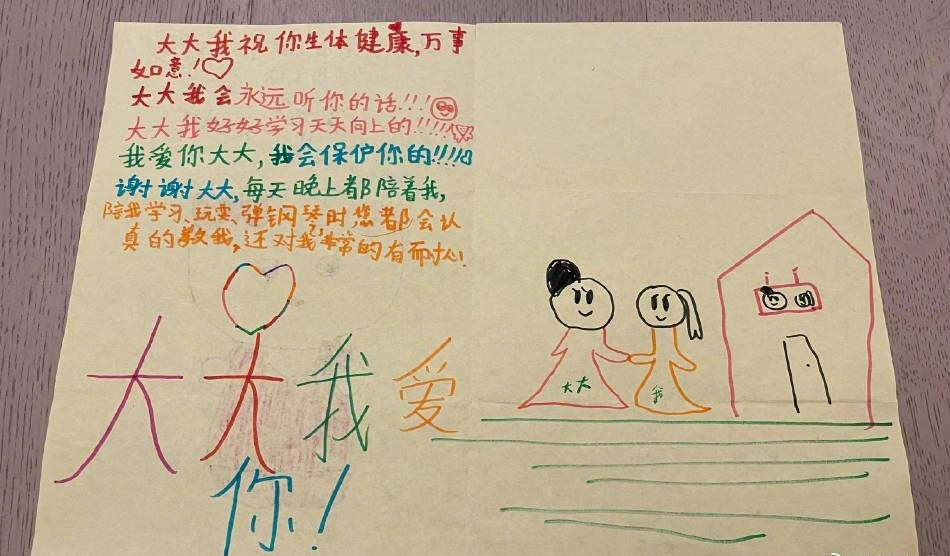 大大我祝你生体健康,万事
如意!
大大我会永远听你的话!!!
大大我好好学习天天向上的!!!!!
我爱你大大,我会保护你的!!!!
谢谢大大,每天晚上都陪着我,
陪我学习、玩耍、弹钢琴时,您都会认
真的教我,还对我非常的有耐心
大大我爱
你!
大大
我